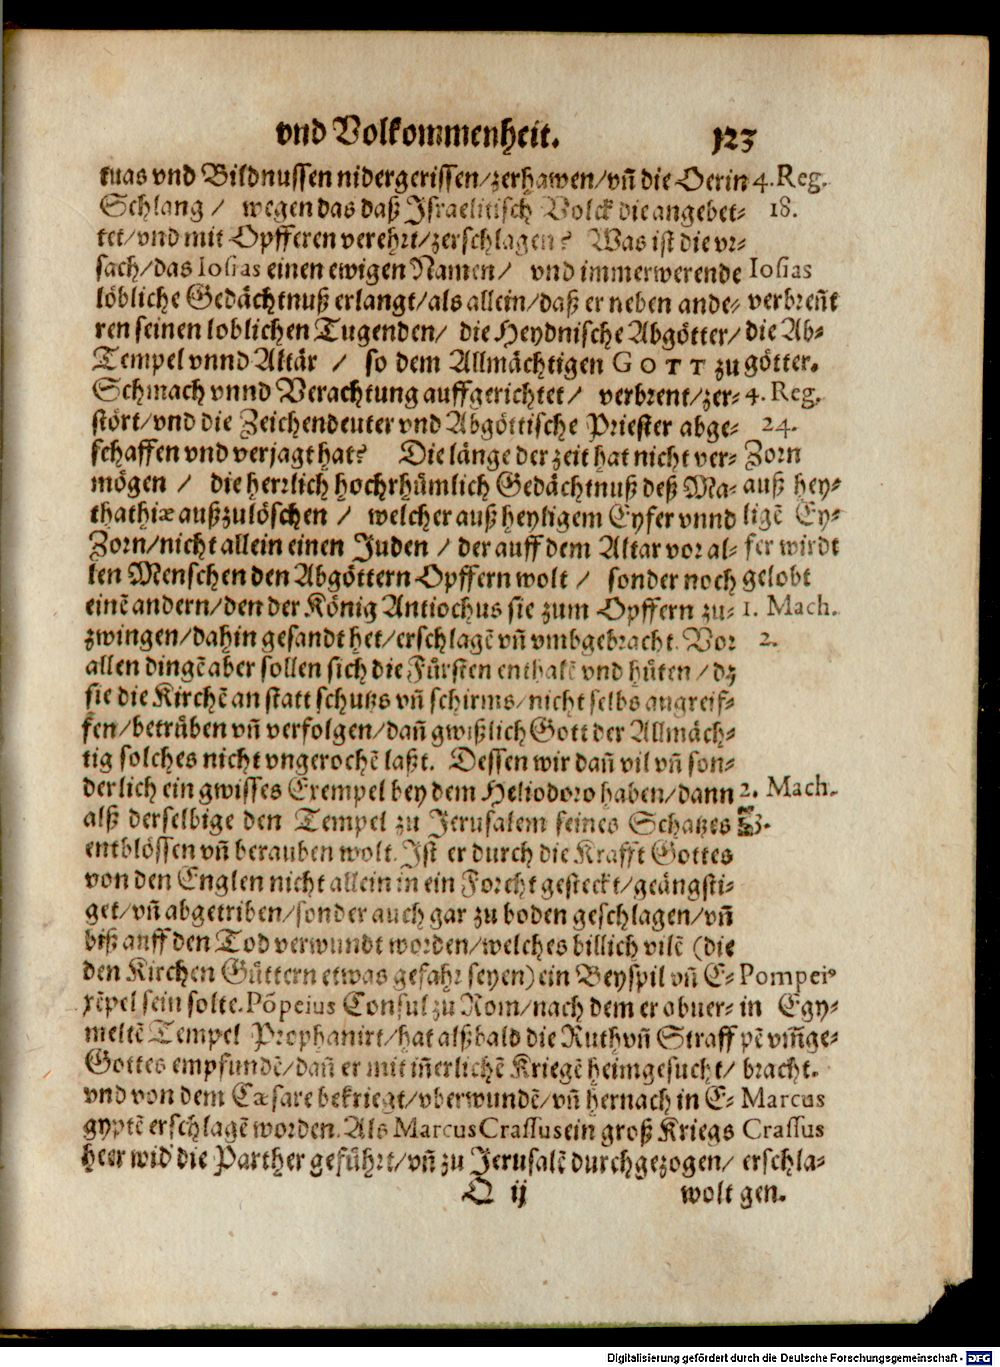 vnd Volkommenheit. 123
tuas vnd Bildnussen nidergerissen/zerhawen/vn̄ die Oerin
Schlang / wegen das daß Israelitisch Volck die angebet-
tet/vnd mit Opfferen verehrt/zerschlagen? Was ist die vr-
sach/das Iosias einen ewigen Namen/ vnd immerwerende
löbliche Gedächtnuß erlangt/als allein/daß er neben ande-
ren seinen loblichen Tugenden/ die Heydnische Abgötter/
Tempel vnnd Altär / so dem Allmächtigen GOTT zu
Schmach vnnd Verachtung auffgerichtet/ verbrent/zer-
stört/vnd die Zeichendeuter vnd Abgöttische Priester abge-
schaffen vnd verjagt hat? Die länge der zeit hat nicht ver-
mögen / die herrlich hochrhümlich Gedächtnuß deß Ma-
thathiæ außzulöschen / welcher auß heyligem Eyfer vnnd
Zorn/nicht allein einen Juden / der auff dem Altar vor al-
len Menschen den Abgöttern Opffern wolt / sonder noch
einē andern/den der König Antiochus sie zum Opffern zu-
zwingen/dahin gesandt het/erschlagē vn̄ vmbgebracht. Vor
allen dingē aber sollen sich die Fürsten enthalē vnd hüten / dz
sie die Kirchē an statt schutzs vn̄ schirms/nicht selbs angreif-
fen/betrüben vn̄ verfolgen/dan̄ gwißlich Gott der Allmäch-
tig solches nicht vngerochē laßt. Dessen wir dan̄ vil vn̄ son-
derlich ein gwisses Exempel bey dem Heliodoro haben/dann
alß derselbige den Tempel zu Jerusalem seines Schatzes
entblössen vn̄ berauben wolt. Ist er durch die Krafft Gottes
von den Englen nicht allein in ein Forcht gesteckt/geängsti-
get/vn̄ abgetriben/sonder auch gar zu boden geschlagen/vn̄
biß auff den Tod verwundt worden/welches billich vilē (die
den Kirchen Güttern etwas gefahr seyen) ein Beyspil vn̄ E-
xēpel sein solte. Pōpeius Consul zu Rom/nach dem er obuer-
meltē Tempel Prophanirt/hat alßbald die Ruth vn̄ Straff
Gottes empfundē/dan̄ er mit in̄erlichē Kriegē heimgesucht/
vnd von dem Cæsare bekriegt/vberwundē/vn̄ hernach in E-
gyptē erschlagē worden. Als Marcus Crassus ein groß Kriegs
heer wid' die Parther geführt/vn̄ zu Jerusalē durchgezogen/
Q ij wolt
4. Reg.
18.
Iosias
verbren̄t
die Ab-
götter.
4. Reg.
24.
Zorn
auß hey-
ligē Ey-
fer wirdt
gelobt
1. Mach.
2.
2. Mach.
3.
Pompeiꝰ
in Egy-
pē vm̄ge-
bracht.
Marcus
Crassus
erschla-
gen.
Digitalisierung gefördert durch die Deutsche Forschungsgemeinschaft - DFG